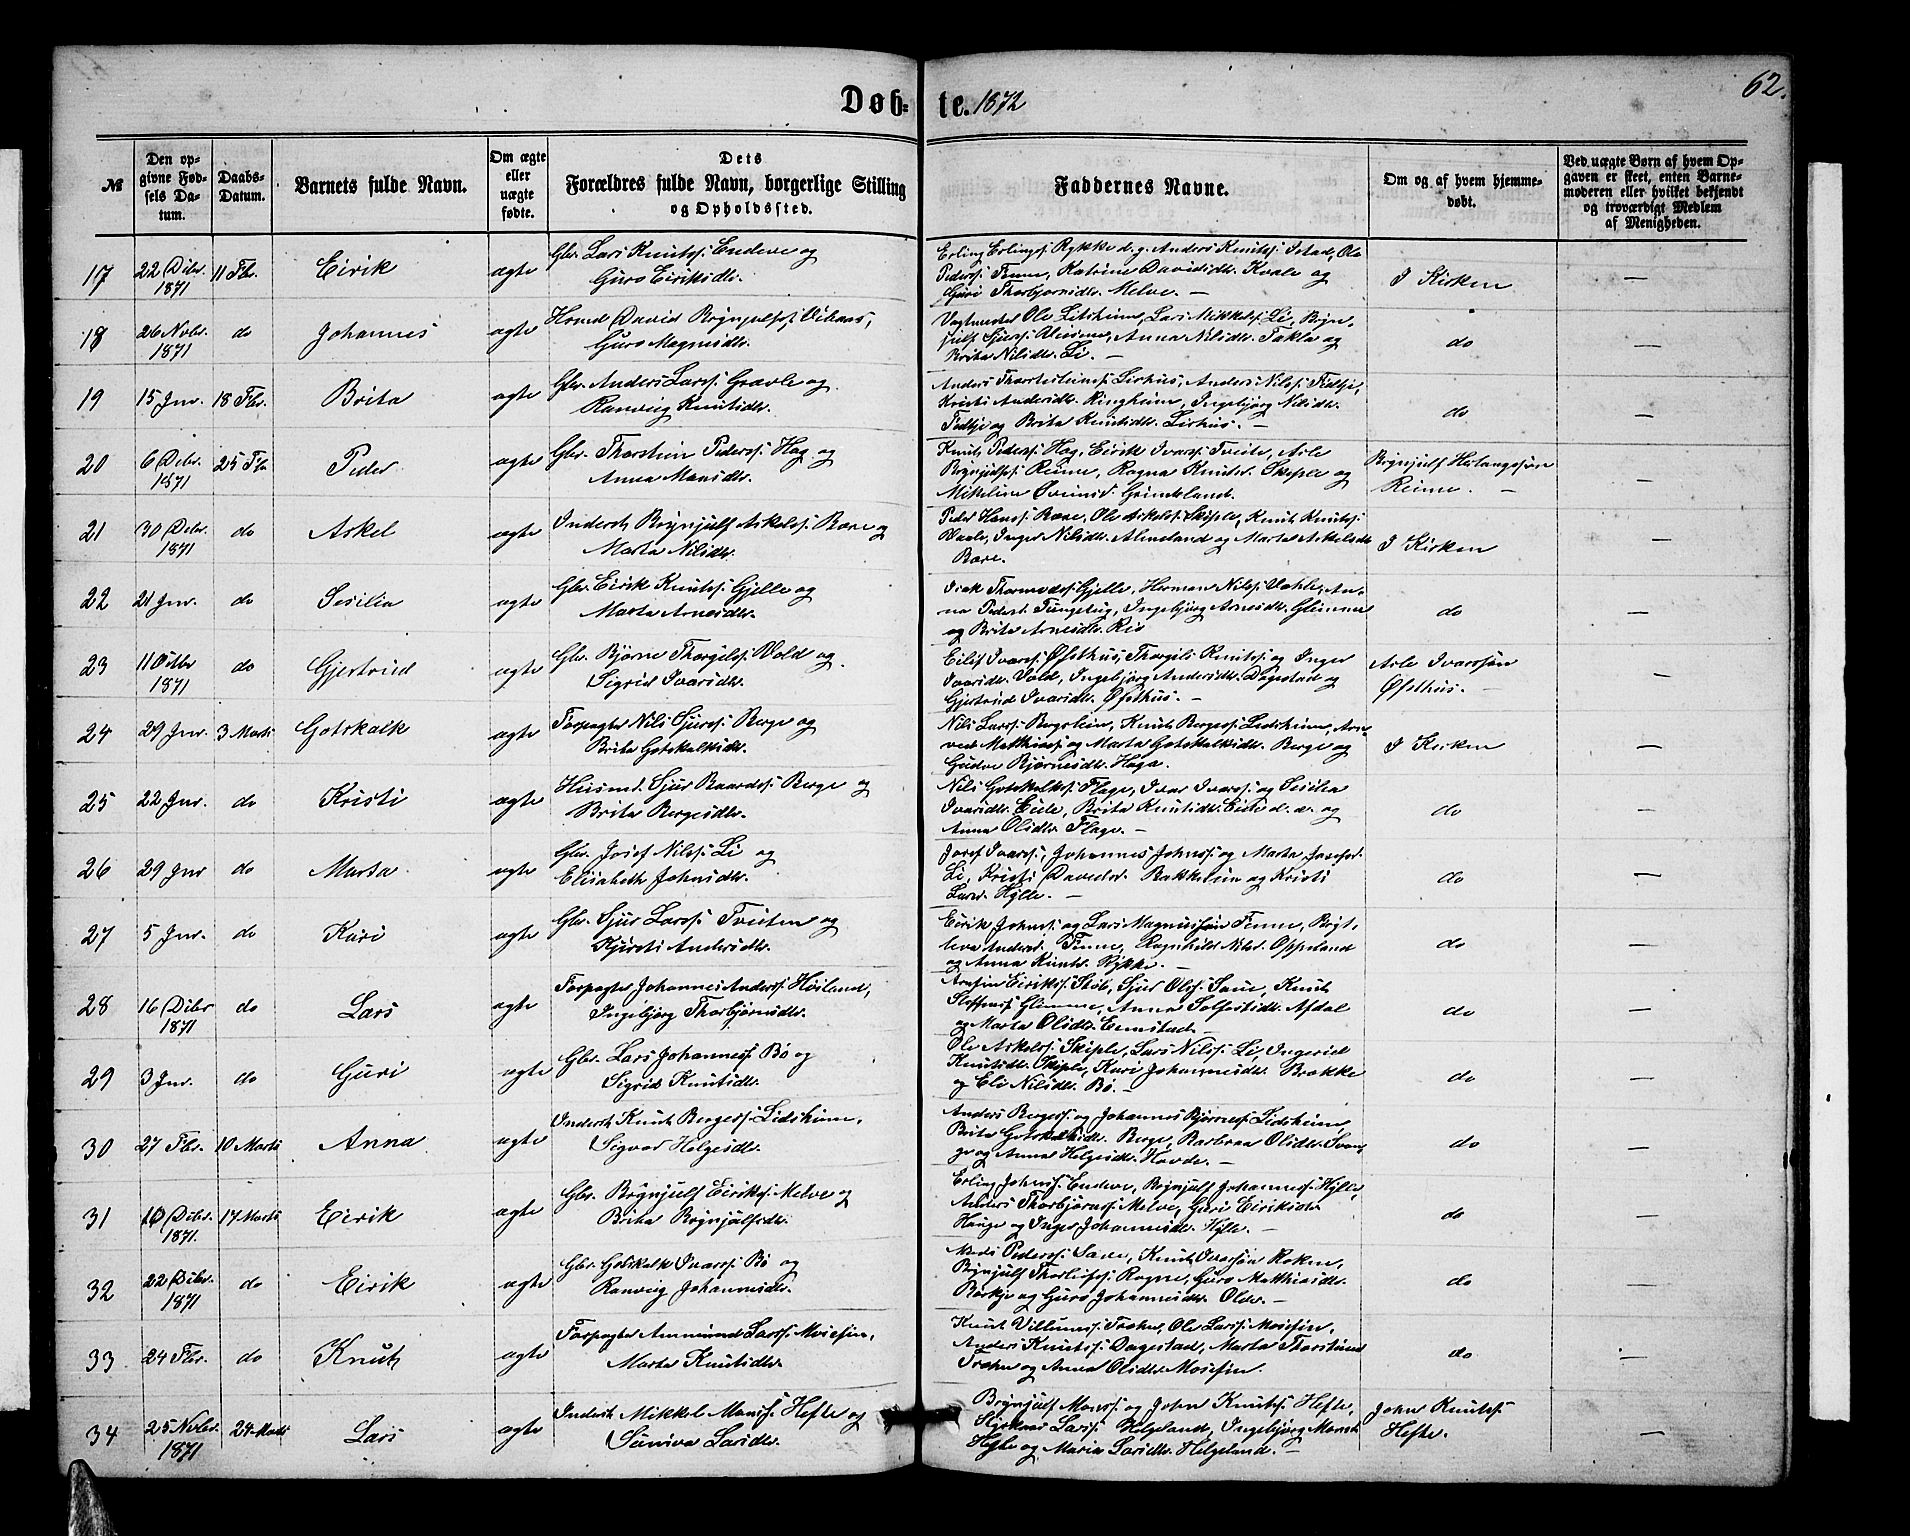 Døb-te. 1872
62.
№
Den opgivne Fødsels Datum.
Daabs-Datum.
Barnets fulde Navn.
Om ægte eller uægte fødte.
Dets Forældres fulde Navn, borgerlige Stilling og Opholdssted.
Faddernes Navne.
Om og af hvem hjemmedøbt.
Ved uægte Børn af hvem Opgaven er skeet, enten Barnemoderen eller hvilket bekjendt og troværdigt Medlem af Menigheden.
17 22 Dcbr. 1871 11 Fbr. Eirik ægte Gbr. Lars Knuts. Endeve og
Guro Eiriksdtr.
Erling Erlings. Rykke d. y. Anders Knuts. Istad, Ole
Peders. Finne, Katrine Davidsdtr. Kvale og
Guri Thorbjørnsdtr. Melve. —
I Kirken —
18 26 Novbr. 1871 do Johannes ægte Husmd. David Brynjulfs.
Guro Magnesdtr.
Ole Lidsheim, Lars Mikkels. Li, Bryn-
julf Sjurs. Anna Nilsdtr. Takla og
Brita Nilsdtr. Li. —
do —
19 15 Jnr. 18 Fbr. Brita ægte Gbr. Anders Lars. Grovle og
Ranveig Knutsdtr.
Anders Thorsteins. Lirhus, Anders Nils. Fedtje,
Kristi Andersdtr. Ringheim, Ingebjørg Nilsdtr.
Fedtje og Brita Knutsdtr. Lirhus. —
do —
20 6 Dcbr. 1871 25 Fbr. Peder ægte Gbr. Thorstein Peders. Hag og
Anna Monsdtr.
Knut Peders. Hag, Eirik Ivars. Tveite, Arle
Brynjulfs. Reime, Ragna Knutsd. Skiple og
Mikeline Grindeland.
Brynjulf
Reime. — —
21 30 Dcbr. 1871 do Askel ægte Inderst Brynjulf Askels. Børe og
Marta Nilsdtr.
Peder Hans. Børe, Ole Askels. Skiple, Knut Knuts.
Inger Nilsdtr. og Marta Askelsdtr
Børe.
I Kirken —
22 21 Jnr. do Sesilia ægte Gbr. Eirik Knuts. Gjelle og
Marta Arnesdtr.
Isak Thormods. Gjelle, Herman Nils. Dahle, An-
na Pedersd. Tungeteig, Ingebjørg Arnesdtr. Glimme
og Brita Arnesdtr. Rio
do —
23 11 Octbr 1871 do Gjertrud ægte Gbr. Bjørne Thorgils. Vold og
Sigrid Ivarsdtr.
Eilif Ivars. Øfsthus, Thorgils Knuts. og Inger
Ivarsdtr. Vold, Ingebjørg Andersdtr. Dagestad og
Gjertrud Ivarsdtr. Øfsthus.
Arle Ivarssøn
Øfsthus. — —
24 29 Jnr. 3 Marts Gotskalk ægte Forpagter Nils Sjurs. Berge og
Brita Gotskalksdtr.
Nils Lars. Bergslien, Knut Berges. Lidsheim, Arn-
ved Matthias. og Marta Gotskalksdtr. Berge og
Gudve Bjørnesdtr. Haga.
I Kirken —
25 22 Jnr. do Kristi ægte Husmd. Sjur Baards. Berge og
Brita Bergesdtr.
Nils Gotskalks. Flage, Ivar Ivars. og Sesilia
Ivarsdtr. Eide, Brita Knutsdtr. Eide d. æ. og
Anna Olsdtr. Flage. —
do —
26 29 Jnr do Marta ægte Gbr. Josef Nils. Li og
Elisabeth Johnsdtr.
Josef Ivars., Johannes Johns. og Marta Josefsd.
Li, Kristi Davidsd. Bakkelien og Kristi
Larsd. Hylle. —
do —
27 5 Jnr. do Kari ægte Gbr. Sjur Lars. Tveiten og
Kjersti Andersdtr.
Eirik Johns. og Lars Magnussøn Finne, Brgt.
Andersd. Finne, Ragnhild Nilsd. Oppeland
og Anna Knutsd. Rykke. —
do —
28 16 Dcbr 1871 do Lars ægte Forpagter Johannes Anders. Høiland,
Ingebjørg Thorbjørnsdtr.
Arnfin Eiriks. Skob, Sjur Ols. Saue, Knut
Steffens. Glimme, Anna Solfestsdtr. Afdal
og Marta Olsdtr. Eimstad. —
do —
29 3 Jnr. do Guri ægte Gbr. Lars Johannes. Bø og
Sigrid Knutsdtr.
Ole Askels. Skiple, Lars Nils. Li, Ingerid
Knutsdtr. Skiple, Kari Johannesdtr. Brekke
og Eli Nilsdtr. Bø. —
do —
30 27 Fbr. 10 Marts Anna ægte Inderst Knut Berges. Lidsheim,
Sigvor Helgesdtr.
Anders Berges. og Johannes Bjørnes. Lidsheim,
Brita Gotskalksdtr. Berge, Barbraa Olsdtr.
og Anna Helgesdtr. Hovde. —
do —
31 10 Dcbr. 1871. 17 Marts Eirik ægte Gbr. Brynjulf Eiriks. Melve og
Brita Brynjulfsdtr.
Erling Johns. Endeve, Brynjulf Johannes. Hylle,
Anders Thorbjørns. Melve, Guri Eiriksdtr.
Hauge og Inger Johannesdtr. Hylle. —
do —
32 22 Dcbr. 1871 do Eirik ægte Gbr. Gotskalk Ivars. Bø og
Ranveig Johannesdtr.
Mads Peders. Saue, Knut Ivarssøn Rokne,
Brynjulf Thorleifs. Rogne, Guro Matthiasdtr.
Børkje og Guro Johannesdtr. Olde. —
do —
33 24 Fbr. do Knut ægte Forpagter Ammund Lars. Mosefin,
Marta Knutsdtr.
Knut Villums. Træen, Ole Lars. Mosefin,
Anders Knuts. Dagestad, Marta Thorsteinsd
Træen og Anna Olsdtr. Mosefin.
do —
34 25 Novbr. 1871 24 Marts Lars ægte Inderst Mikkel Mons. Hefte og
Synneva Larsdtr.
Brynjulf Mons. og John Knuts. Hefte,
Styrkaar Lars. Helgeland, Ingebjørg Monsd.
Hefte og Maria Larsdtr. Helgeland. —
John Knuts.
Hefte. —